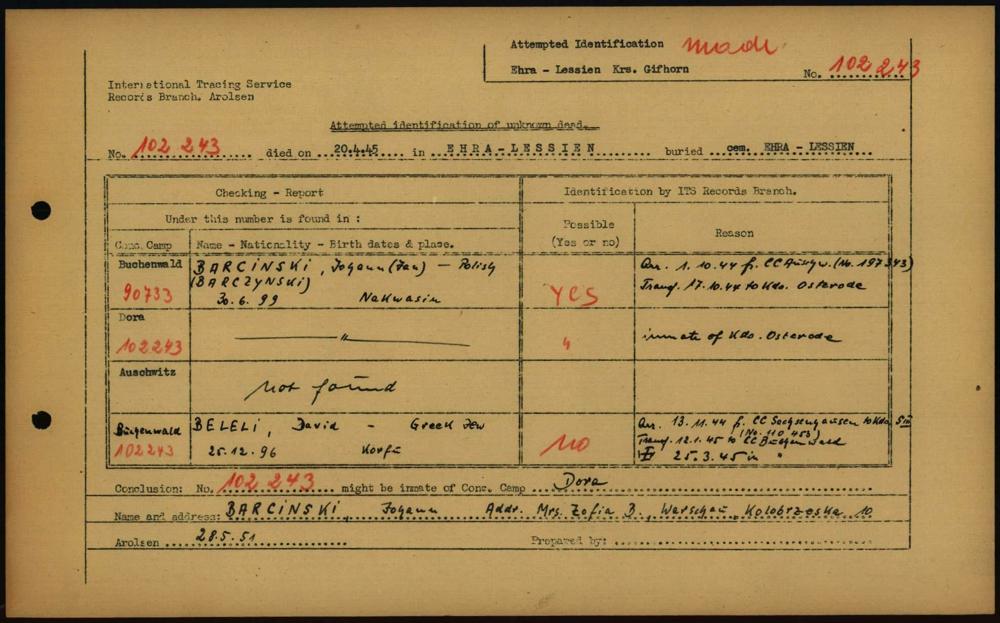 Attempted Identification made
Ehra - Lessien Krs. Gifhorn
No. 102 243
International Tracing Service
Records Branch. Arolsen
Attempted identification of unknown dead.
No. 102 243 died on 20.4.45 in EHRA-LESSIEN buried cem. EHRA - LESSIEN
Checking - Report
Identification by ITS Records Branch.
Under this number is found in :
Possible
(Yes or no)
Reason
Conc. Camp
Name - Nationality - Birth dates & place.
Buchenwald
90733
BARCINSKI, Johann (Jan) - Polish
(BARCZYNSKI)
30.6.99 Nakwasin
YES
Arr. 1.10.44 fr. CC Auschw. (No. 197343)
Transf. 17.10.44 to Kdo. Osterode
Dora
102243
"
"
inmate of Kdo. Osterode
Auschwitz
Not found
Buchenwald
102243
BELELI, David - Greek Jew
25.12.96 Korfu
NO
Arr. 13.11.44 fr. CC Sachsenhausen to Kdo. SIII
(No. 110 453)
Transf. 12.1.45 to CC Buchenwald
25.3.45 in "
Conclusion: No. 102 243 might be inmate of Conc. Camp Dora
Name and address: BARCINSKI, Johann Addr. Mrs. Zofia B., Warschau, Kolobrzeska 10
Arolsen 28.5.51
Prepared by: